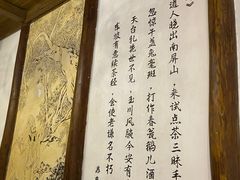 道人晓出南屏山,来试点茶三昧手
忽惊午盏兔毫斑,打作春瓮鹅儿酒
天台乳花世不见,玉川风腋今安有
东坡有意续茶经,会使老谦名不朽